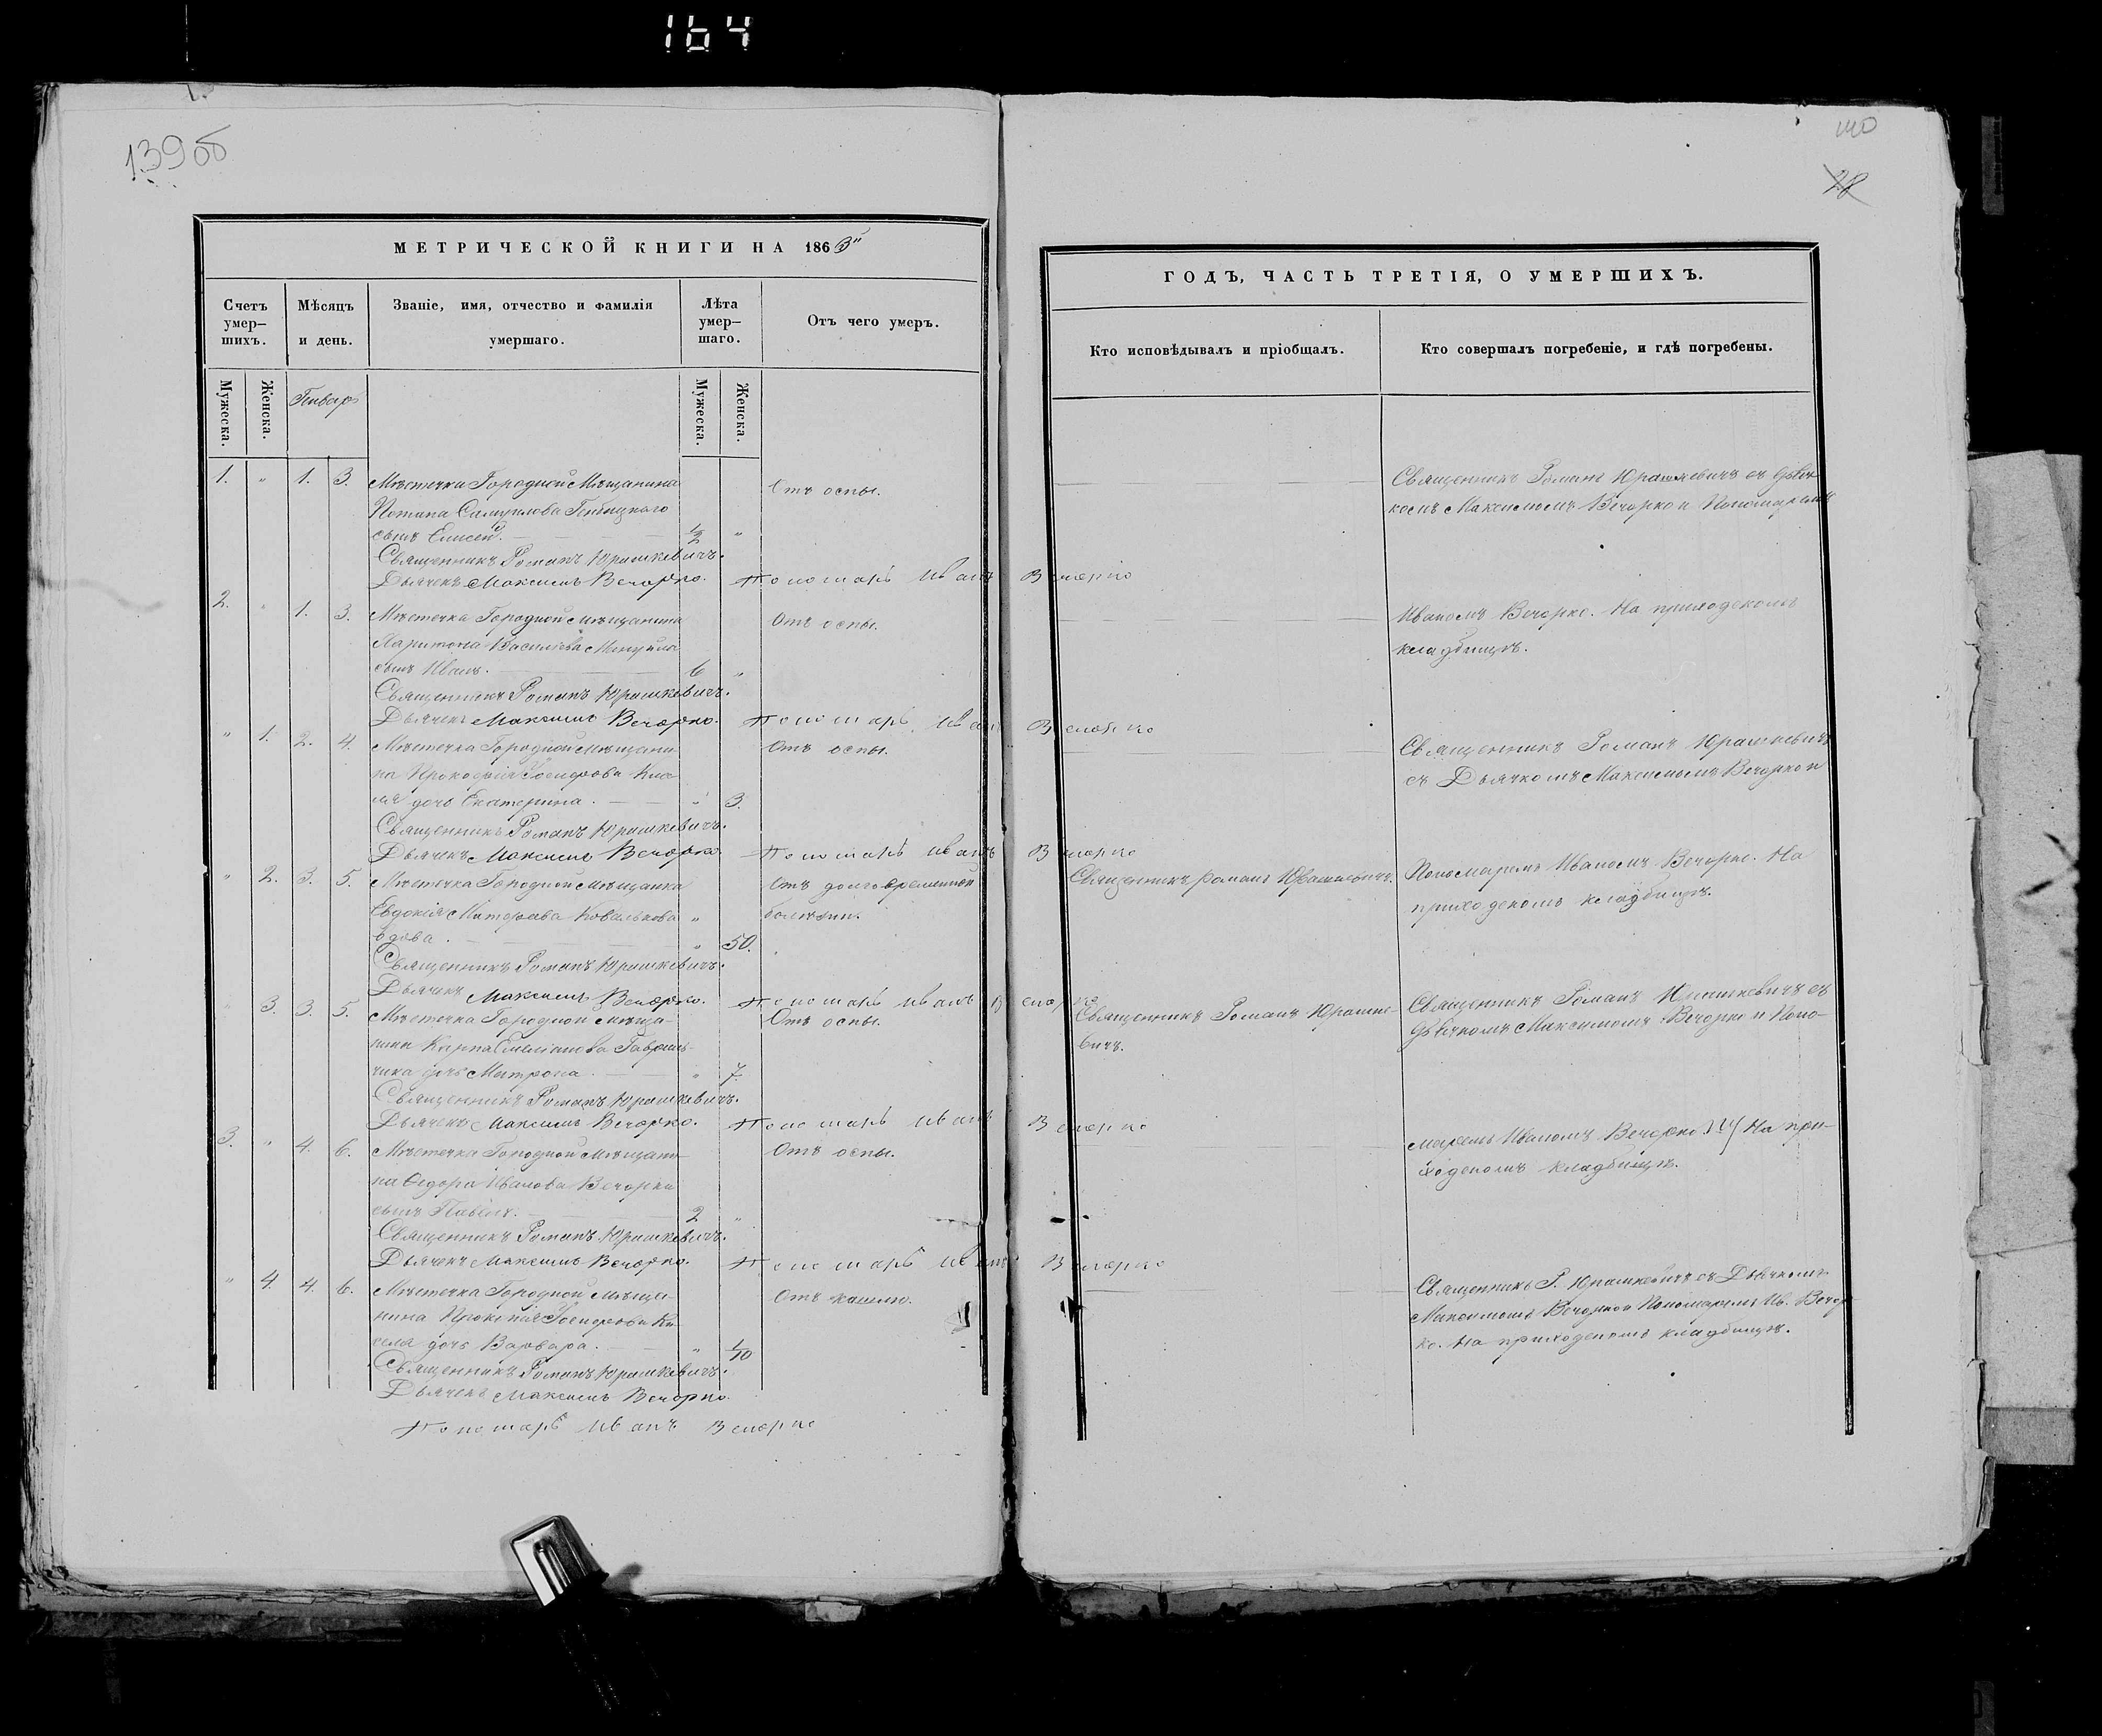 164
139об
140
28
МЕТРИЧЕСКОЙ КНИГИ НА 1863й
Счетъ умер-шихъ.
Мѣсяцъ и день.
Званіе, имя, отчество и фамилія умершаго.
Лѣта умер-шаго.
Отъ чего умеръ.
Мужеска.
Женска.
Генварь
Мужеска.
Женска.
1. " 1. 3. Мѣстечка Городной Мѣщанина
Потапа Самуилова
сынъ Елисей. 1/2 "
Отъ оспы.
Священникъ Романъ Юрашкевичъ.
Дьячекъ Максимъ Вечорко. Пономарь Иванъ Вечорко
2. " 1. 3. Мѣстечка Городной Мѣщанина
Харитона Василіева
сынъ Иванъ. 6 "
Отъ оспы.
Священникъ Романъ Юрашкевичъ.
Дьячекъ Максимъ Вечорко. Пономарь Иванъ Вечорко
" 1. 2. 4. Мѣстечка Городной Мѣщани-
на Прокофія Іосифова Кис-
ля дочь Екатерина. " 3.
Отъ оспы.
Священникъ Романъ Юрашкевичъ.
Дьячекъ Максимъ Вечорко. Пономарь Иванъ Вечорко
" 2. 3. 5. Мѣстечка Городной Мѣщанка
Евдокія Ковалькова
вдова. " 50.
Отъ долговременной
болѣзни.
Священникъ Романъ Юрашкевичъ.
Дьячекъ Максимъ Вечорко. Пономарь Иванъ Вечорко
" 3. 3. 5. Мѣстечка Городной Мѣща-
нина Карпа Емеліанова Гаврил-
чика дочь Матрона. " 7.
Отъ оспы.
Священникъ Романъ Юрашкевичъ.
Дьячекъ Максимъ Вечорко. Пономарь Иванъ Вечорко
3. " 4. 6. Мѣстечка Городной Мѣщани-
на Ѳедора Иванова Вечорки
сынъ Павелъ. 2 "
Отъ оспы.
Священникъ Романъ Юрашкевичъ.
Дьячекъ Максимъ Вечорко. Пономарь Иванъ Вечорко
" 4. 4. 6. Мѣстечка Городной Мѣща-
нина Прокопія Іосифова Ки-
селя дочь Варвара. " 1/10
Отъ кашлю.
Священникъ Романъ Юрашкевичъ.
Дьячекъ Максимъ Вечорко.
Пономарь Иванъ Вечорко
ГОДЪ, ЧАСТЬ ТРЕТІЯ, О УМЕРШИХЪ.
Кто исповѣдывалъ и пріобщалъ.
Кто совершалъ погребеніе, и гдѣ погребены.
Священникъ Романъ Юрашкевичъ съ Дьяч-
комъ Максимомъ Вечорко и Пономаремъ
Иваномъ Вечорко. На приходскомъ
кладбищѣ.
Священникъ Романъ Юрашкевичъ
съ Дьячкомъ Максимомъ Вечорко и
Священникъ Романъ Юрашкевичъ.
Пономаремъ Иваномъ Вечорко. На
приходскомъ кладбищѣ.
Священникъ Романъ Юрашке-
вичъ.
Священникъ Романъ Юрашкевичъ съ
Дьячкомъ Максимомъ Вечорко и Поно-
маремъ Иваномъ Вечорко На при-
ходскомъ кладбищѣ.
Священникъ Р. Юрашкевичъ съ Дьячкомъ
Максимомъ Вечорко и Пономаремъ Ив. Вечор-
ко. На приходскомъ кладбищѣ.